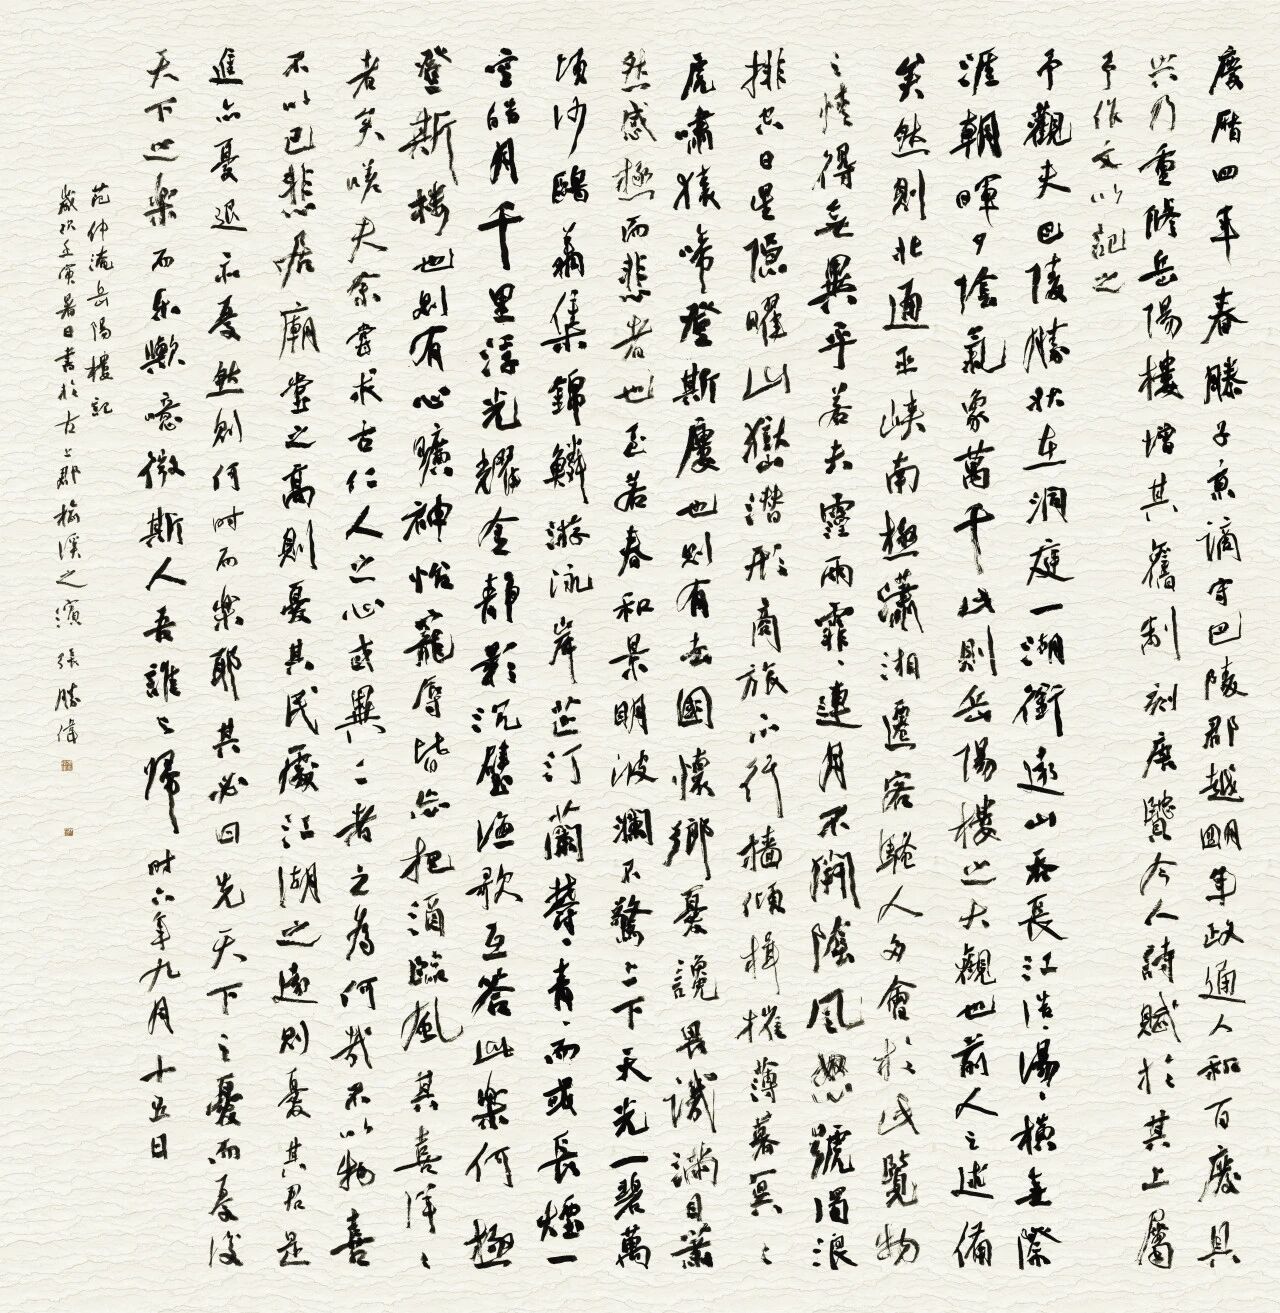 慶曆四年春滕子京謫守巴陵郡越明年政通人和百廢具
兴乃重修岳陽樓增其舊制刻唐賢今人詩賦於其上屬
予作文以記之
予觀夫巴陵勝狀在洞庭一湖銜遠山吞長江浩〻湯〻橫無際
涯朝暉夕陰氣象萬千此則岳陽樓之大觀也前人之述備
矣然則北通巫峽南極瀟湘遷客騷人多會於此覽物
之情得無異乎若夫霪雨霏〻連月不開陰風怒號濁浪
排空日星隱曜山嶽潛形商旅不行檣傾楫摧薄暮冥〻
虎嘯猿啼登斯樓也則有去國懷鄉憂讒畏譏滿目蕭
然感極而悲者也至若春和景明波瀾不驚上下天光一碧萬
頃沙鷗翔集錦鱗游泳岸芷汀蘭鬱〻青〻而或長煙一
空皓月千里浮光耀金靜影沉璧漁歌互答此樂何極
登斯楼也則有心曠神怡寵辱皆忘把酒臨風其喜洋〻
者矣嗟夫余嘗求古仁人之心或異二者之為何哉不以物喜
不以己悲居廟堂之高則憂其民處江湖之遠則憂其君是
進亦憂退亦憂然則何时而樂耶其必曰先天下之憂而憂後
天下之樂而樂歟噫微斯人吾誰与歸时六年九月十五日
范仲淹岳陽樓記
歲次壬寅暑日書於古上郡榆溪之濱張勝偉